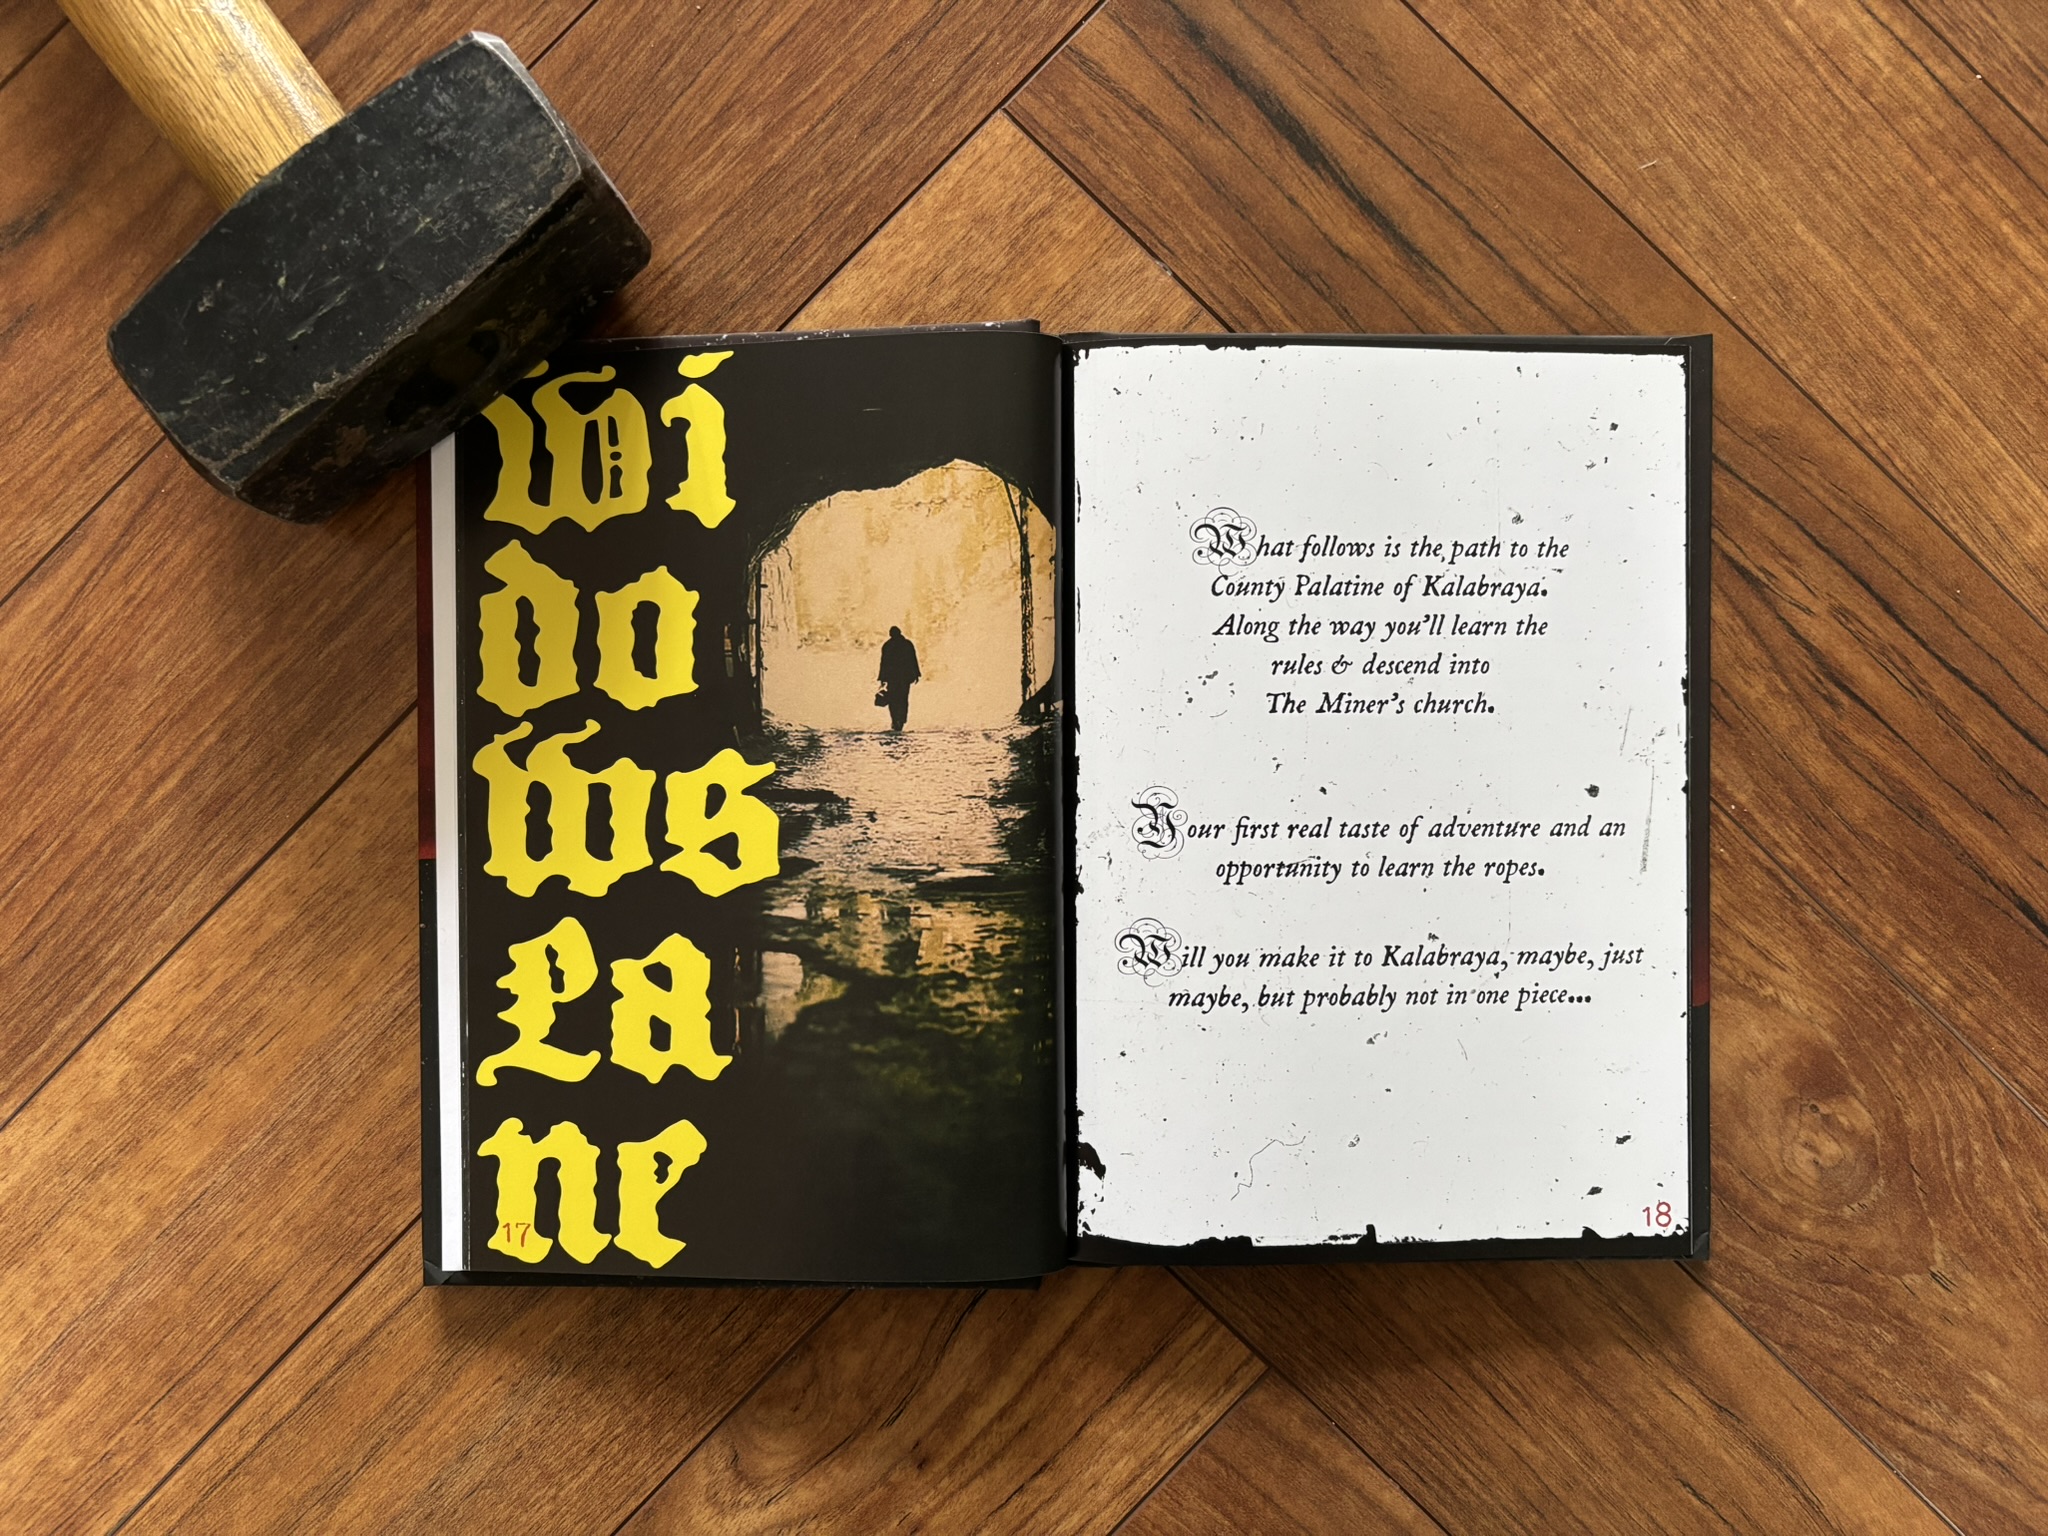 Wi
do
ws
La
ne
17
What follows is the path to the
County Palatine of Kalabraya.
Along the way you'll learn the
rules & descend into
The Miner's church.
Your first real taste of adventure and an
opportunity to learn the ropes.
Will you make it to Kalabraya, maybe, just
maybe, but probably not in one piece...
18